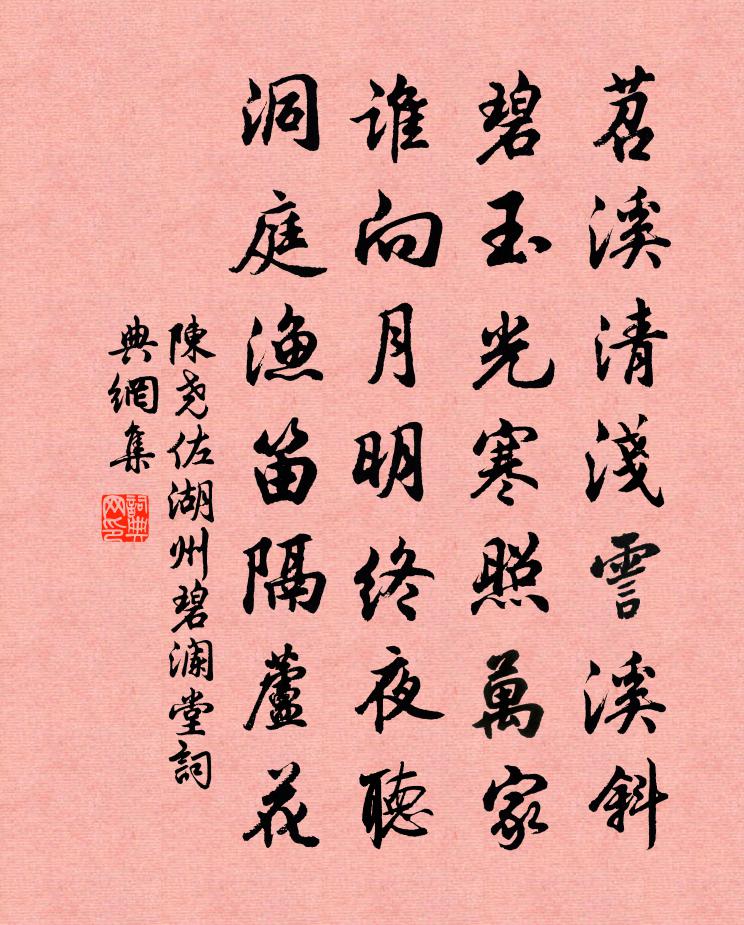 苕溪清淺霅溪斜
碧玉光寒照萬家
誰向月明終夜聽
洞庭漁笛隔蘆花
陳尧佐湖州碧瀾堂詞
典網集
詞典网印